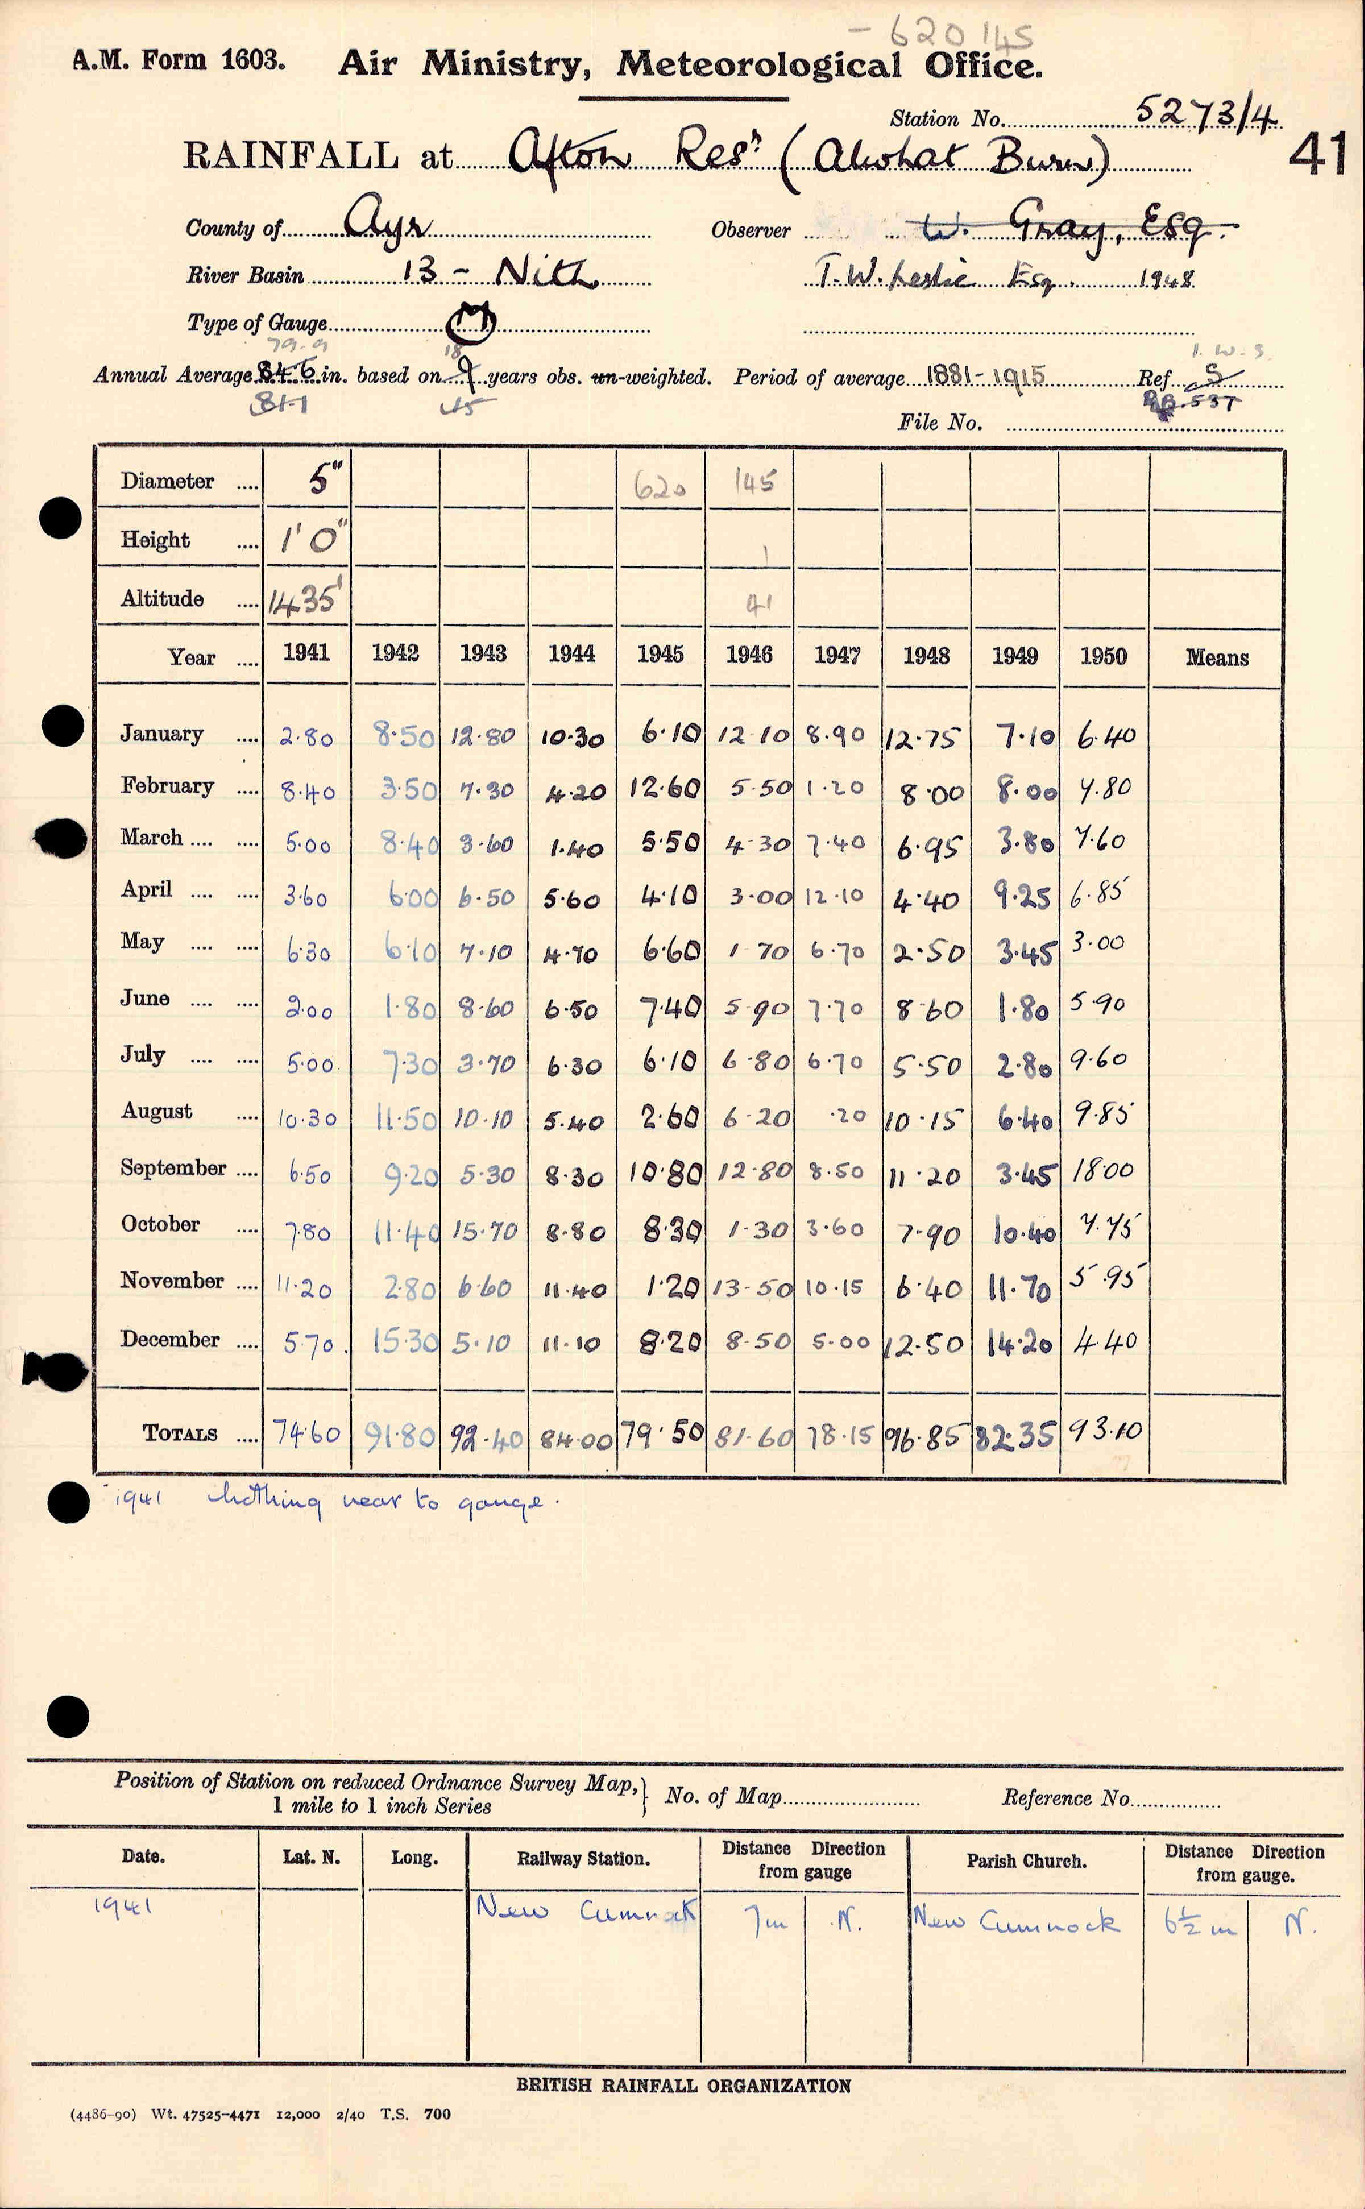 - 620145
A.M. Form 1603. Air Ministry, Meteorological Office.
Station No. 5273/4
RAINFALL at Afton Resr (Alwhat Burn) 41
County of Ayr Observer W. Gray, Esq.
River Basin 13 - Nith T.W. Leslie Esq. 1948
Type of Gauge M
79.9 18 1. W. 3.
Annual Average 84.6 in. based on 9 years obs. un-weighted. Period of average 1881-1915 Ref. S
81.1 15 537
File No.
Diameter .... 5" 620 145
Height .... 1' 0" 1
Altitude .... 1435' 41
Year .... 1941 1942 1943 1944 1945 1946 1947 1948 1949 1950 Means
January .... 2.80 8.50 12.80 10.30 6.10 12.10 8.90 12.75 7.10 6.40
February .... 8.40 3.50 7.30 4.20 12.60 5.50 1.20 8.00 8.00 7.80
March .... .... 5.00 8.40 3.60 1.40 5.50 4.30 7.40 6.95 3.80 7.60
April .... .... 3.60 6.00 6.50 5.60 4.10 3.00 12.10 4.40 9.25 6.85
May .... .... 6.30 6.10 7.10 4.70 6.60 1.70 6.70 2.50 3.45 3.00
June .... .... 2.00 1.80 8.60 6.50 7.40 5.90 7.70 8.60 1.80 5.90
July .... .... 5.00 7.30 3.70 6.30 6.10 6.80 6.70 5.50 2.80 9.60
August .... 10.30 11.50 10.10 5.40 2.60 6.20 .20 10.15 6.40 9.85
September .... 6.50 9.20 5.30 8.30 10.80 12.80 8.50 11.20 3.45 18.00
October .... 7.80 11.40 15.70 8.80 8.30 1.30 3.60 7.90 10.40 7.75
November .... 11.20 2.80 6.60 11.40 1.20 13.50 10.15 6.40 11.70 5.95
December .... 5.70 15.30 5.10 11.10 8.20 8.50 5.00 12.50 14.20 4.40
TOTALS .... 74.60 91.80 92.40 84.00 79.50 81.60 78.15 96.85 82.35 93.10
1941 Nothing near to gauge.
Position of Station on reduced Ordnance Survey Map, 1 mile to 1 inch Series } No. of Map Reference No.
Date. Lat. N. Long. Railway Station. Distance from gauge Direction Parish Church. Distance from gauge. Direction
1941 New Cumnock 7m N. New Cumnock 6½ m N.
BRITISH RAINFALL ORGANIZATION
(4486-90) Wt. 47525-4471 12,000 2/40 T.S. 700